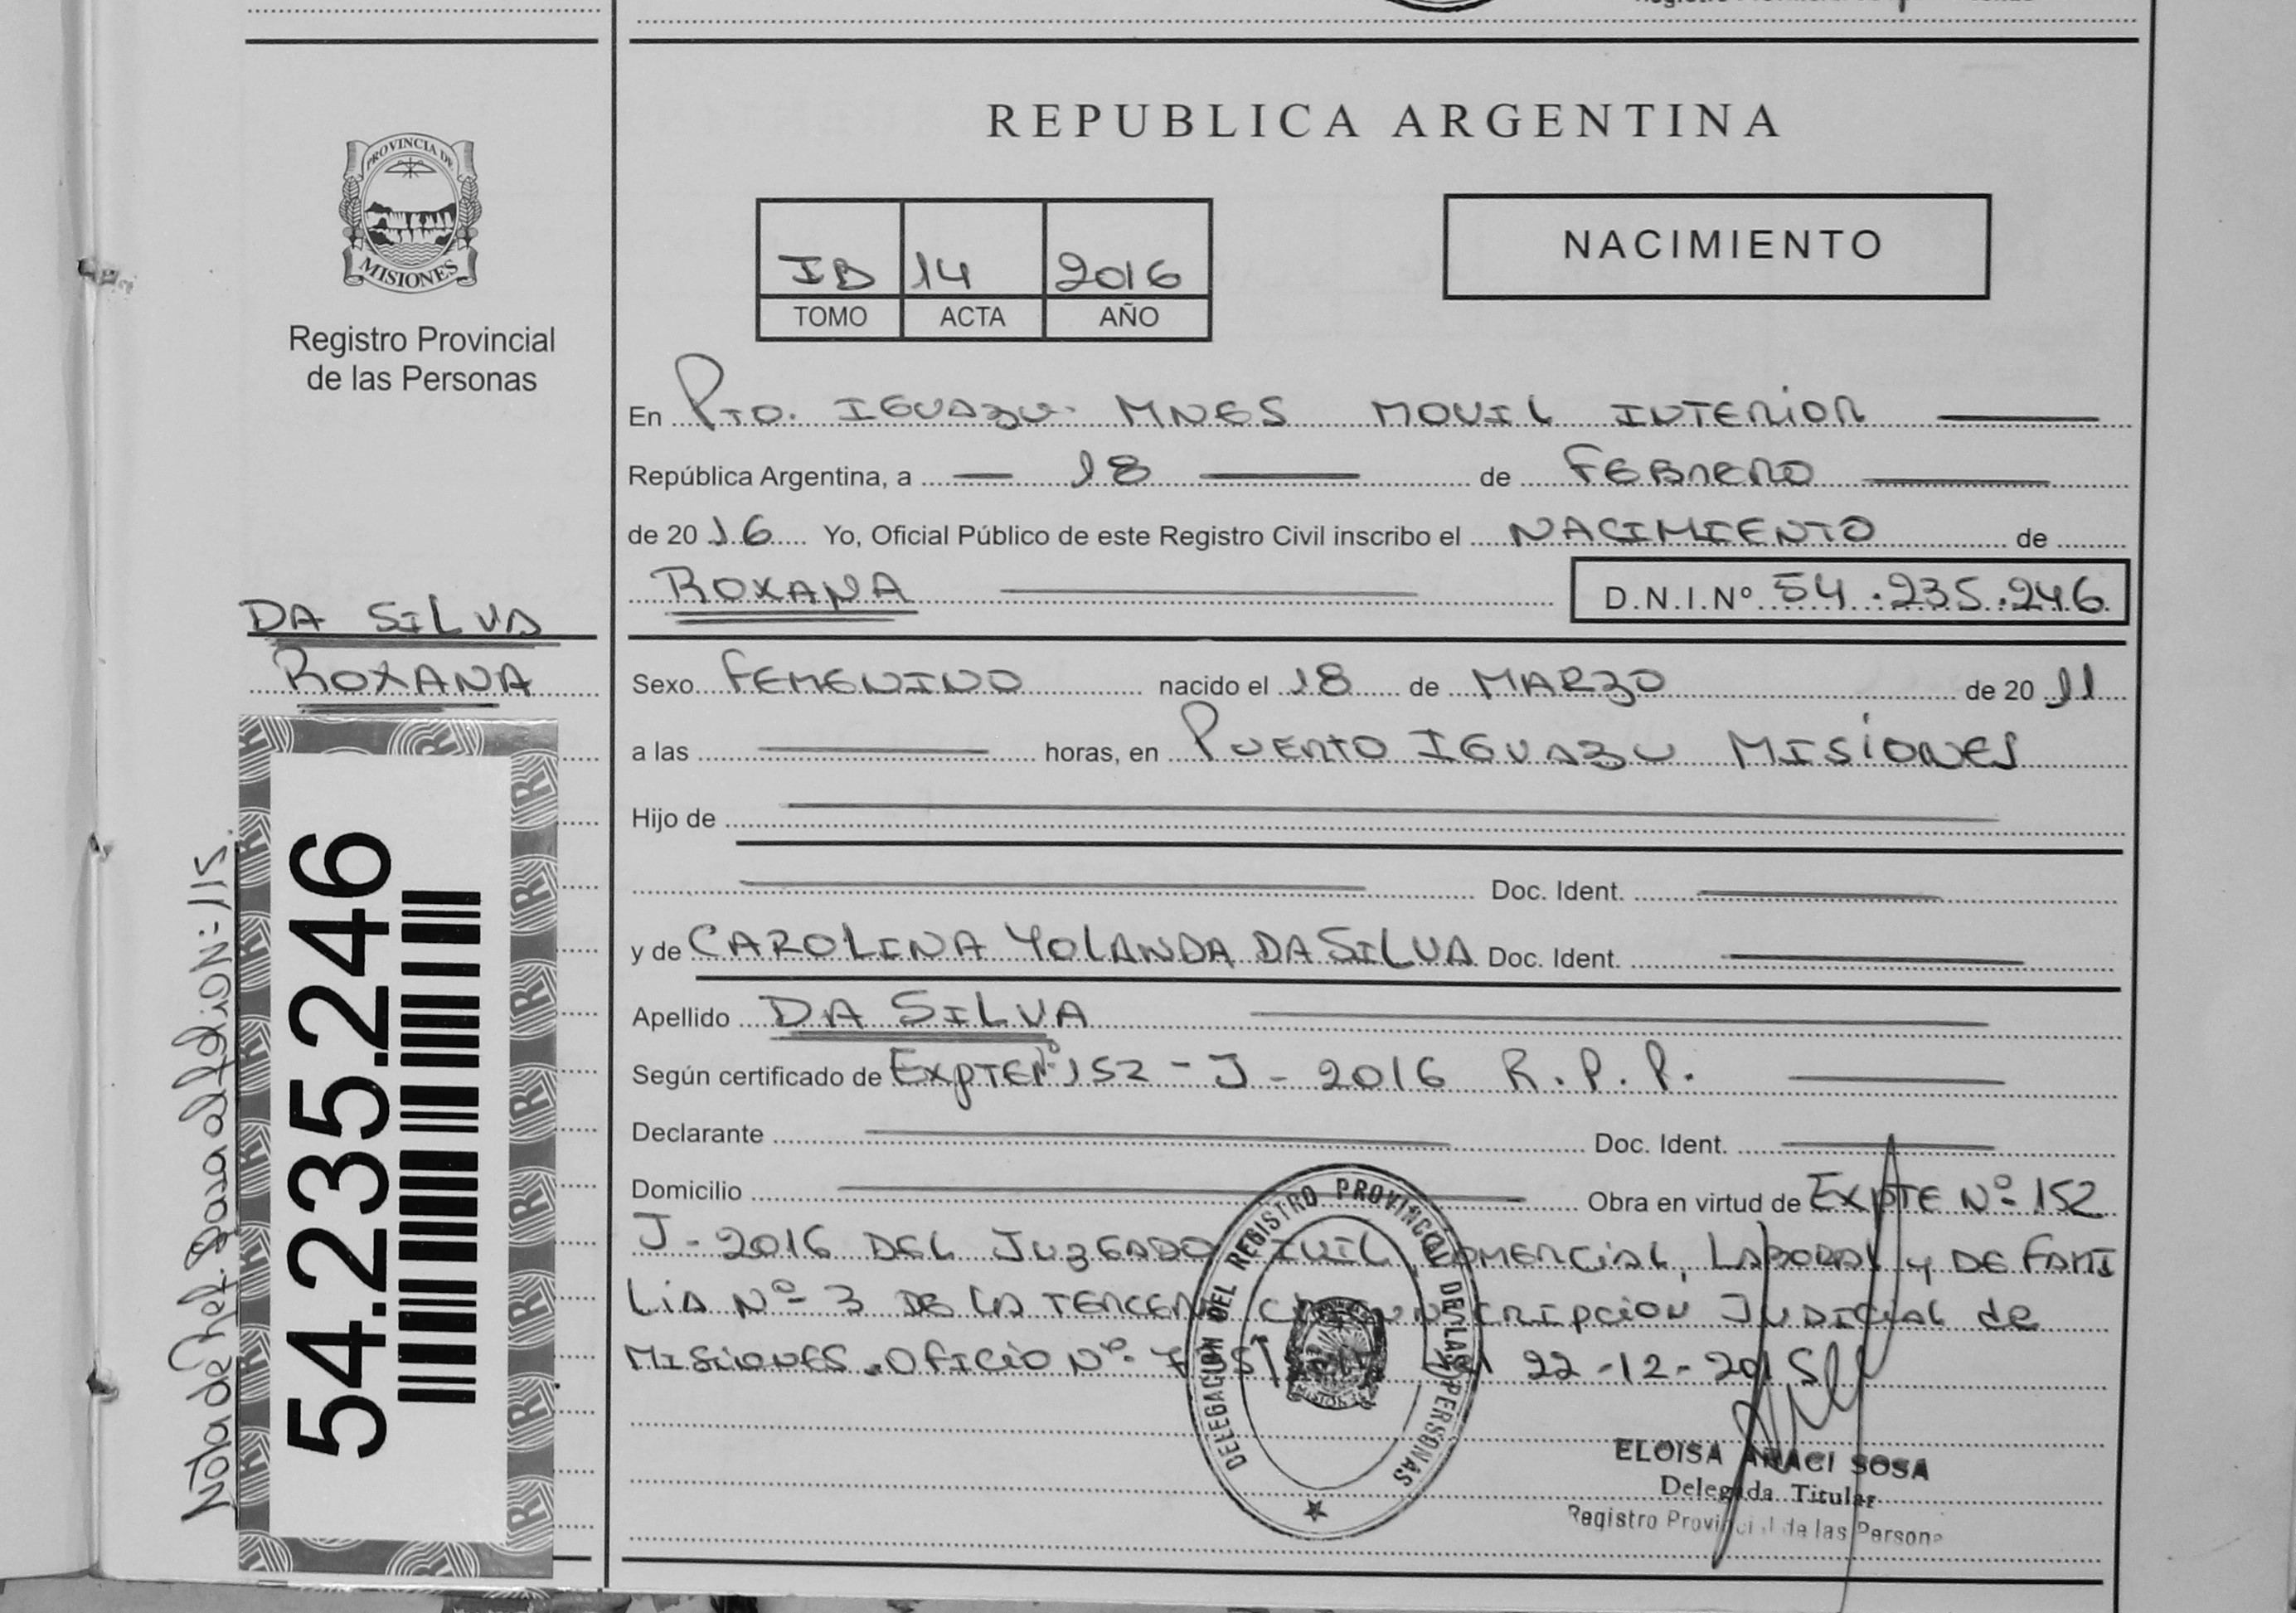 REPUBLICA ARGENTINA
PROVINCIA DE
MISIONES
Registro Provincial
de las Personas
IB 14 2016
TOMO ACTA AÑO
NACIMIENTO
En Pto. IGUAZU MNES MOVIL INTERIOR
República Argentina, a 18 de FEBRERO
de 2016 Yo, Oficial Público de este Registro Civil inscribo el NACIMIENTO de
ROXANA D.N.I.Nº 54.235.246
DA SILVA
ROXANA
Sexo FEMENINO nacido el 18 de MARZO de 2011
a las horas, en PUERTO IGUAZU MISIONES
Hijo de
Doc. Ident.
y de CAROLINA YOLANDA DA SILVA Doc. Ident.
Apellido DA SILVA
Según certificado de EXPTE Nº 152 - J - 2016 R.P.P.
Declarante Doc. Ident.
Domicilio Obra en virtud de EXPTE Nº 152
J - 2016 DEL JUZGADO CIVIL, COMERCIAL, LABORAL y DE FAMI
LIA Nº 3 DE LA TERCERA CIRCUNSCRIPCION JUDICIAL de
MISIONES. OFICIO Nº 22-12-2015
54.235.246
Nota de Ref. Pasa al folio Nº 115.
DELEGACION DEL REGISTRO PROVINCIAL DE LAS PERSONAS
ELOISA ARACI SOSA
Delegada Titular
Registro Provincial de las Persona